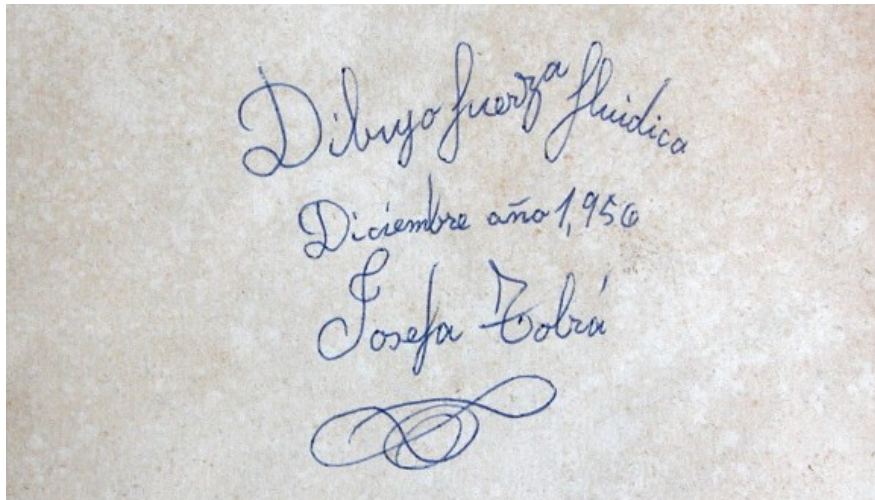 Dibujo fuerza fluidica
Diciembre año 1,956
Josefa Tolrá